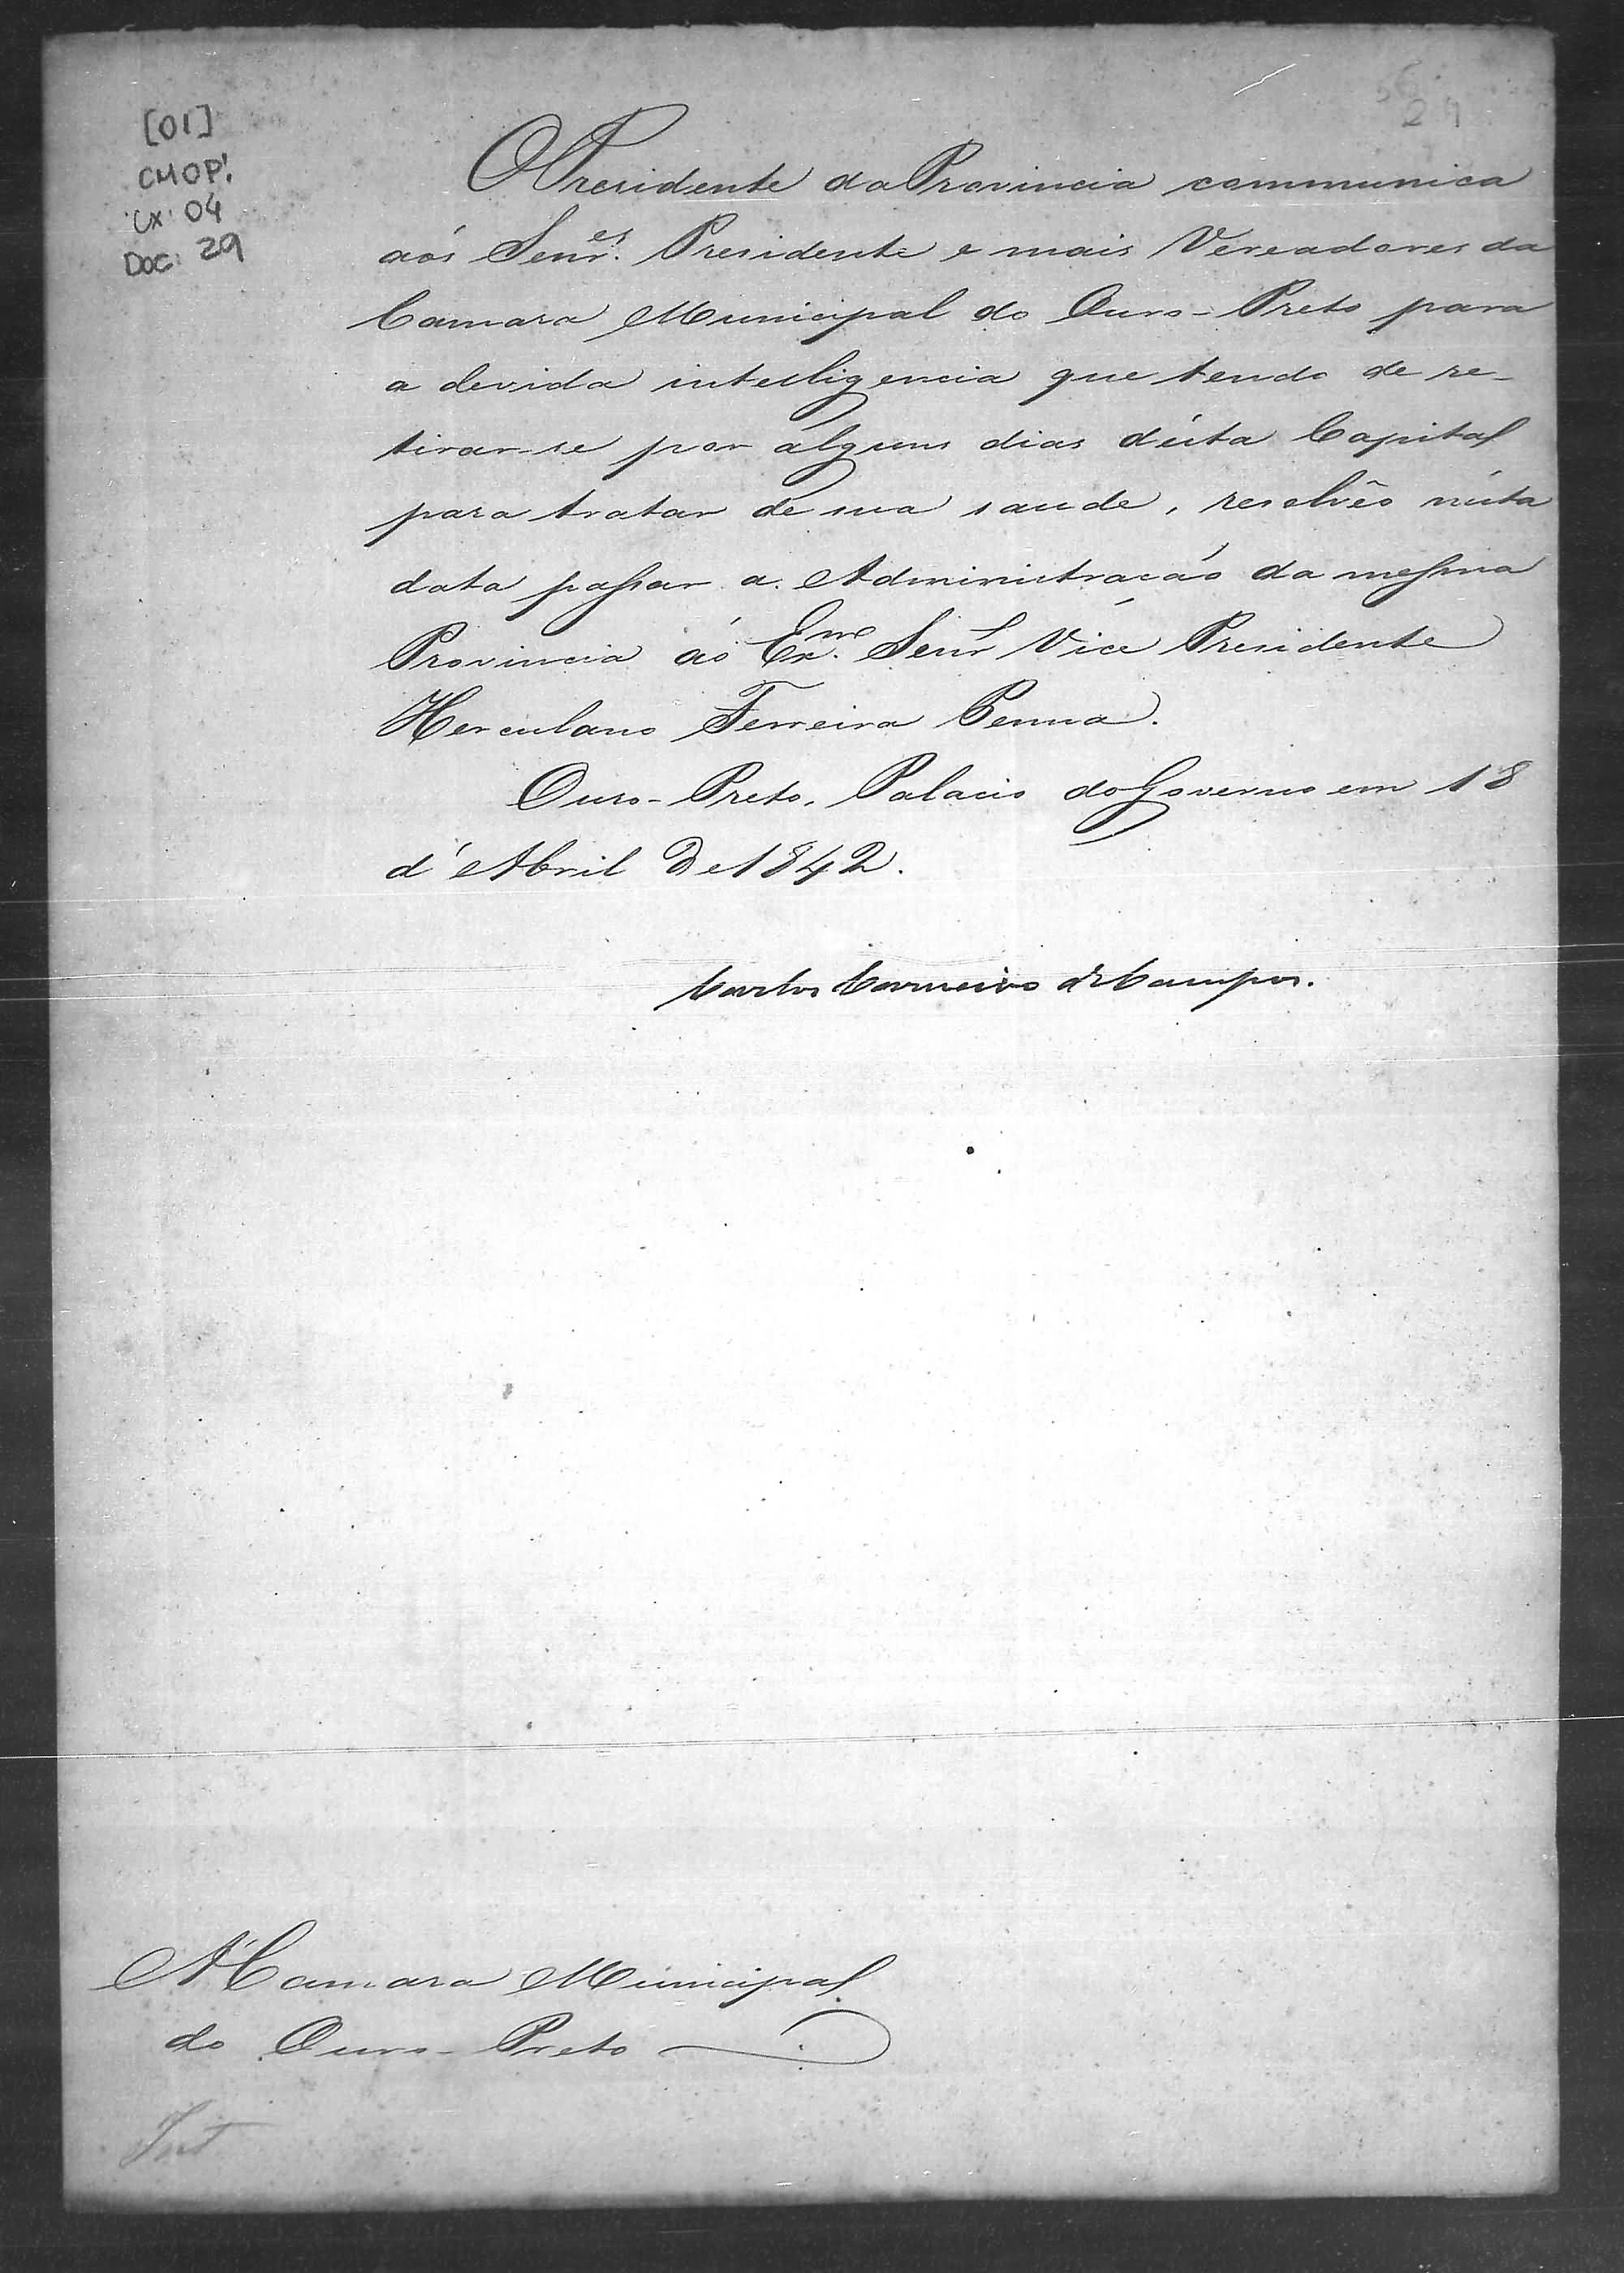 [01]
CMOP!
Cx: 04
Doc: 29
29
O Presidente da Provincia communica
aós Senr.es Presidente e mais Vereadores da
Camara Municipal do Ouro-Preto para
a devida intelligencia que tendo de re-
tirar-se por alguns dias d'ésta Capital
para tratar de sua saude, resolvêo n'ésta
data passar a Administração da mesma
Provincia áo Ex.mo Senr Vice Presidente
Herculano Ferreira Penna.
Ouro-Preto, Palacio do Governo em 18
d'Abril de 1842.
Carlos Carneiro de Campos.
A' Camara Municipal
do Ouro-Preto